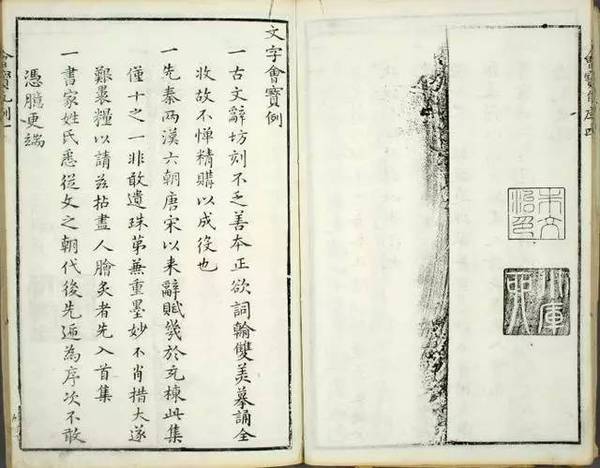 朱文
治印
文字會寶例
一古文辭坊刻不乏善本正欲詞翰雙美摹誦全
收故不憚精購以成役也
一先秦兩漢六朝唐宋以來辭賦幾於充棟此集
僅十之一非敢遺珠第兼重墨妙不肖措大遂
艱裹糧以請茲拈盡人膾炙者先入首集
一書家姓氏悉從文之朝代後先遞為序次不敢
憑臆更端